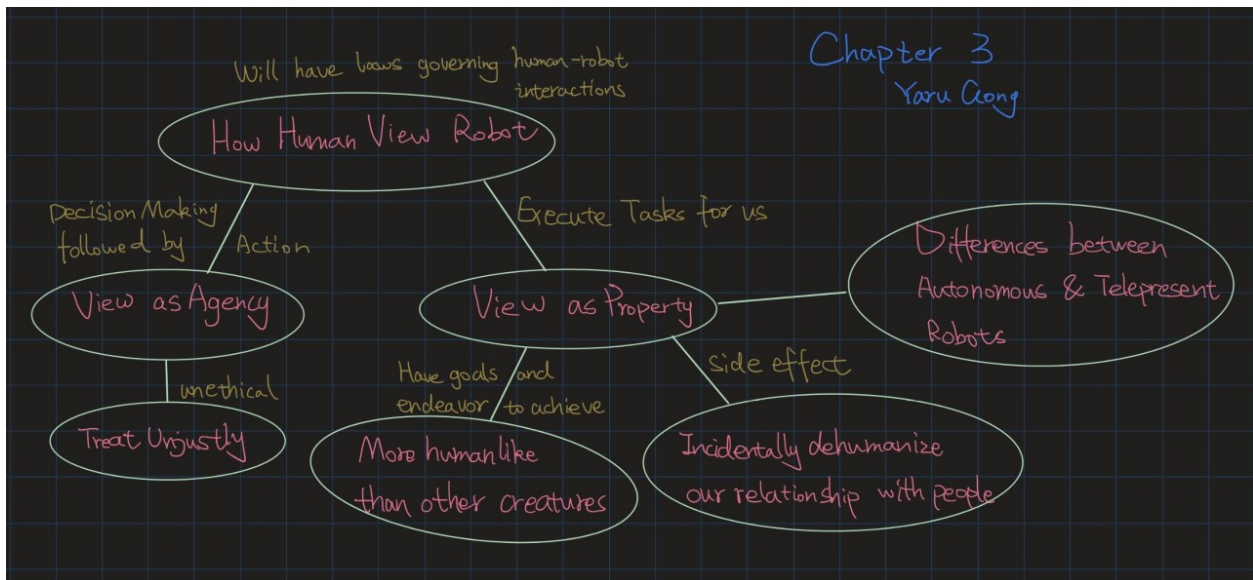 Chapter 3
Yaru Gong
Will have laws governing human-robot
interactions
How Human View Robot
Decision Making
followed by Action
Execute Tasks for us
View as Agency
View as Property
Differences between
Autonomous & Telepresent
Robots
unethical
Treat Unjustly
Have goals and
endeavor to achieve
side effect
More humanlike
than other creatures
Incidentally dehumanize
our relationship with people